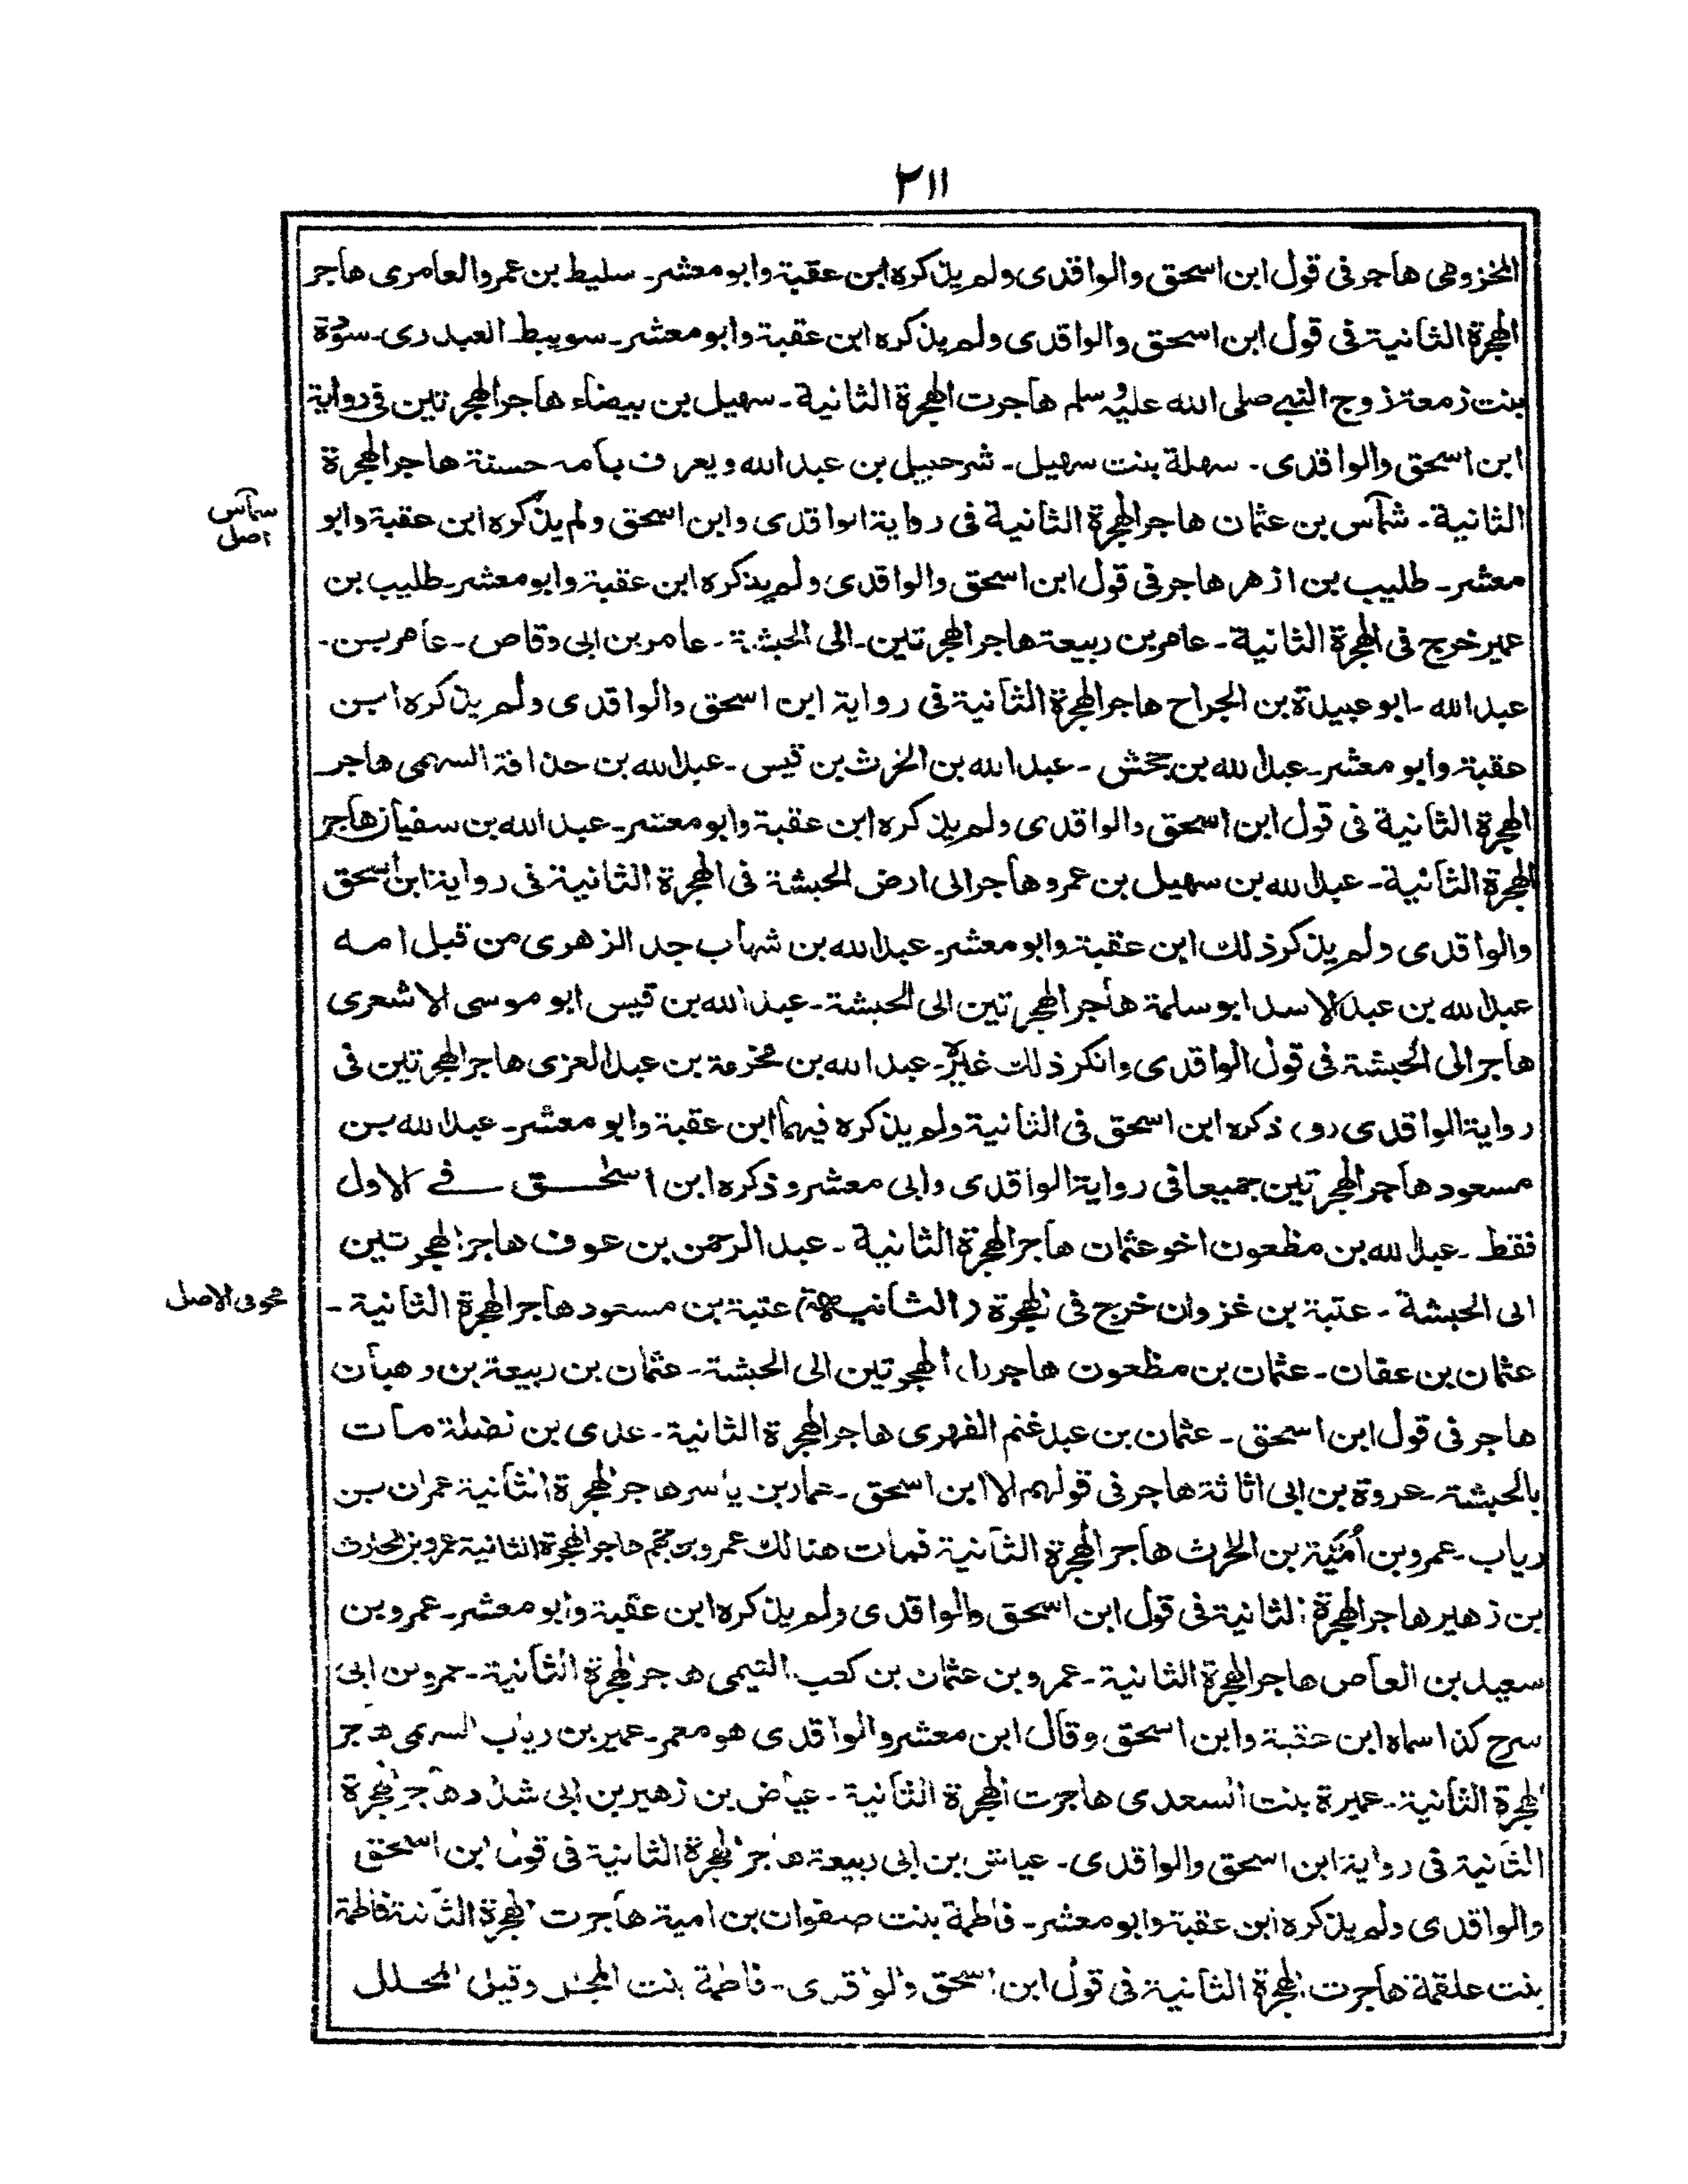 ٢١١
المخزومى هاجر فى قول ابن اسحق والواقدى ولم يذكره ابن عقبة وابو معشر۔ سليط بن عمرو العامرى هاجر
الهجرة الثانية فى قول ابن اسحق والواقدى ولم يذكره ابن عقبة وابو معشر۔ سويبط العبدرى۔ سودة
بنت زمعة زوج النبى صلى الله عليه وسلم هاجرت الهجرة الثانية۔ سهيل بن بيضاء هاجر الهجرتين فى رواية
ابن اسحق والواقدى۔ سهلة بنت سهيل۔ شرحبيل بن عبد الله ويعرف بامه حسنة هاجر الهجرة
الثانية۔ شمآس بن عثمان هاجر الهجرة الثانية فى رواية الواقدى وابن اسحق ولم يذكره ابن عقبة وابو
سمآس اصل
معشر۔ طليب بن ازهر هاجر فى قول ابن اسحق والواقدى ولم يذكره ابن عقبة وابو معشر۔ طليب بن
عمير خرج فى الهجرة الثانية۔ عامر بن ربيعة هاجر الهجرتين۔ الى الحبشة۔ عامر بن ابى وقاص۔ عامر بن۔
عبد الله۔ ابو عبيدة بن الجراح هاجر الهجرة الثانية فى رواية ابن اسحق والواقدى ولم يذكره ابن
عقبة وابو معشر۔ عبد الله بن جحش۔ عبد الله بن الحرث بن قيس۔ عبد الله بن حذافة السهمى هاجر
الهجرة الثانية فى قول ابن اسحق والواقدى ولم يذكره ابن عقبة وابو معشر۔ عبد الله بن سفيان هاجر
الهجرة الثانية۔ عبد الله بن سهيل بن عمرو هاجر الى ارض الحبشة فى الهجرة الثانية فى رواية ابن اسحق
والواقدى ولم يذكر ذلك ابن عقبة وابو معشر۔ عبد الله بن شهاب جد الزهرى من قبل امه
عبد الله بن عبد الاسد ابو سلمة هاجر الهجرتين الى الحبشة۔ عبد الله بن قيس ابو موسى الاشعرى
هاجر الى الحبشة فى قول الواقدى وانكر ذلك غيره۔ عبد الله بن مخرمة بن عبد العزى هاجر الهجرتين فى
رواية الواقدى (و) ذكره ابن اسحق فى الثانية ولم يذكره فيهما ابن عقبة وابو معشر۔ عبد الله بن
مسعود هاجر الهجرتين جميعا فى رواية الواقدى وابى معشر وذكره ابن اسحق فى الاول
فقط۔ عبد الله بن مظعون اخو عثمان هاجر الهجرة الثانية۔ عبد الرحمن بن عوف هاجر الهجرتين
الى الحبشة۔ عتبة بن غزوان خرج فى الهجرة (الثانية) عتبة بن مسعود هاجر الهجرة الثانية۔
محو فى الاصل
عثمان بن عفان۔ عثمان بن مظعون هاجر(ا) الهجرتين الى الحبشة۔ عثمان بن ربيعة بن وهبان
هاجر فى قول ابن اسحق۔ عثمان بن عبد غنم الفهرى هاجر الهجرة الثانية۔ عدى بن نضلة مات
بالحبشة۔ عروة بن ابى اثاثة هاجر فى قولهم لا ابن اسحق۔ عمار بن ياسر هاجر الهجرة الثانية عمران بن
رياب۔ عمرو بن اُمَيّة بن الحرث هاجر الهجرة الثانية فمات هنالك عمرو بن جهم هاجر الهجرة الثانية عمرو بن الحارث
بن زهير هاجر الهجرة الثانية فى قول ابن اسحق والواقدى ولم يذكره ابن عقبة وابو معشر۔ عمرو بن
سعيد بن العاص هاجر الهجرة الثانية۔ عمرو بن عثمان بن كعب التيمى هاجر الهجرة الثانية۔ عمرو بن ابى
سرح كذا سماه ابن عقبة وابن اسحق وقال ابن معشر والواقدى هو معمر۔ عمير بن رياب السهمى هاجر
الهجرة الثانية۔ عميرة بنت السعدى هاجرت الهجرة الثانية۔ عياض بن زهير بن ابى شداد هاجر الهجرة
الثانية فى رواية ابن اسحق والواقدى۔ عياش بن ابى ربيعة هاجر الهجرة الثانية فى قول ابن اسحق
والواقدى ولم يذكره ابن عقبة وابو معشر۔ فاطمة بنت صفوان بن امية هاجرت الهجرة الثانية فاطمة
بنت علقمة هاجرت الهجرة الثانية فى قول ابن اسحق والواقدى۔ فاطمة بنت المجلل وقيل المحلل